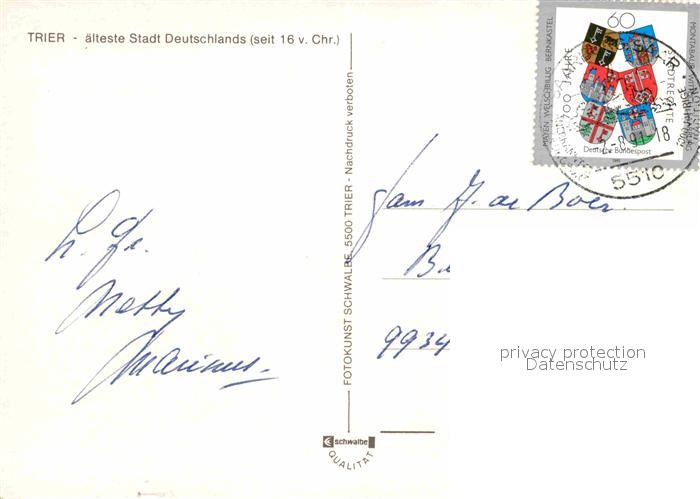 TRIER - älteste Stadt Deutschlands (seit 16 v. Chr.)
FOTOKUNST SCHWALBE, 5500 TRIER - Nachdruck verboten
schwalbe
QUALITÄT
MAYEN WELSCHBILLIG BERNKASTEL
60
700 JAHRE
STADTRECHTE
Deutsche Bundespost
-8.91-18
5510
Fam J. de Boer.
9934
H. Gr.
Netty
Marinus
privacy protection
Datenschutz